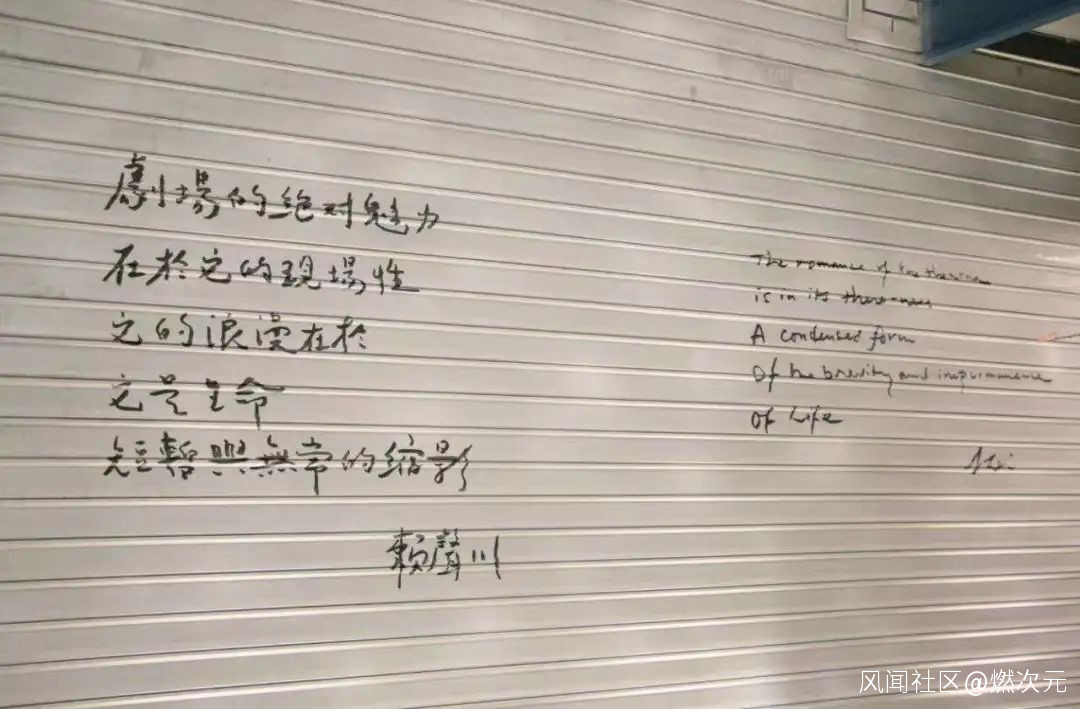 劇場的绝对魅力
在於它的現場性
它的浪漫在於
它是生命
短暫與無常的缩影
賴聲川
The romance of the theatre
is in its
A condensed form
Of the brevity and impermanence
Of Life
风闻社区@燃次元